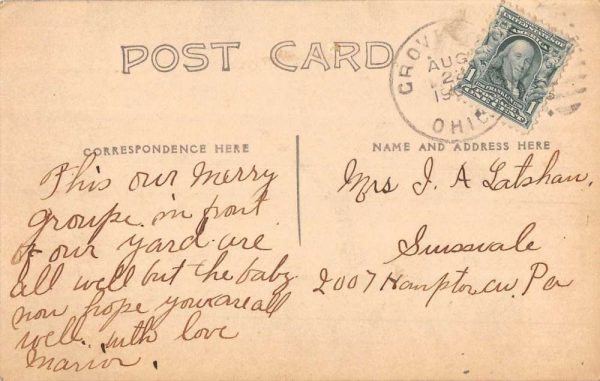 POST CARD
GROVE
AUG
2
19
OHIO
UNITED STATES OF AMERICA
1 1
FRANKLIN
ONE CENT
CORRESPONDENCE HERE
This our merry
groupe in front
of our yard are
all well but the baby
now hope you are all
well. with love
Marion.
NAME AND ADDRESS HERE
Mrs J. A Latshaw.
Swissvale
2007 Hampton av. Pa